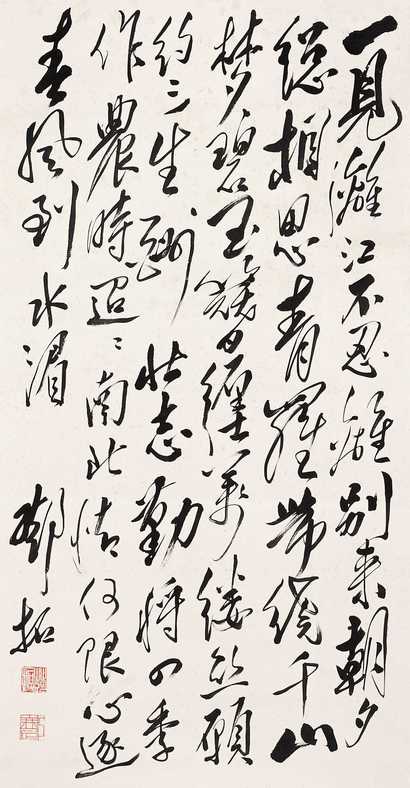 一見灕江不忍離別來朝夕
總相思青羅帶繞千山
夢碧玉簪纏萬縷絲願
約三生酬壯志勤將四季
作農時迢〻南北情何限心逐
春風到水湄
鄧拓